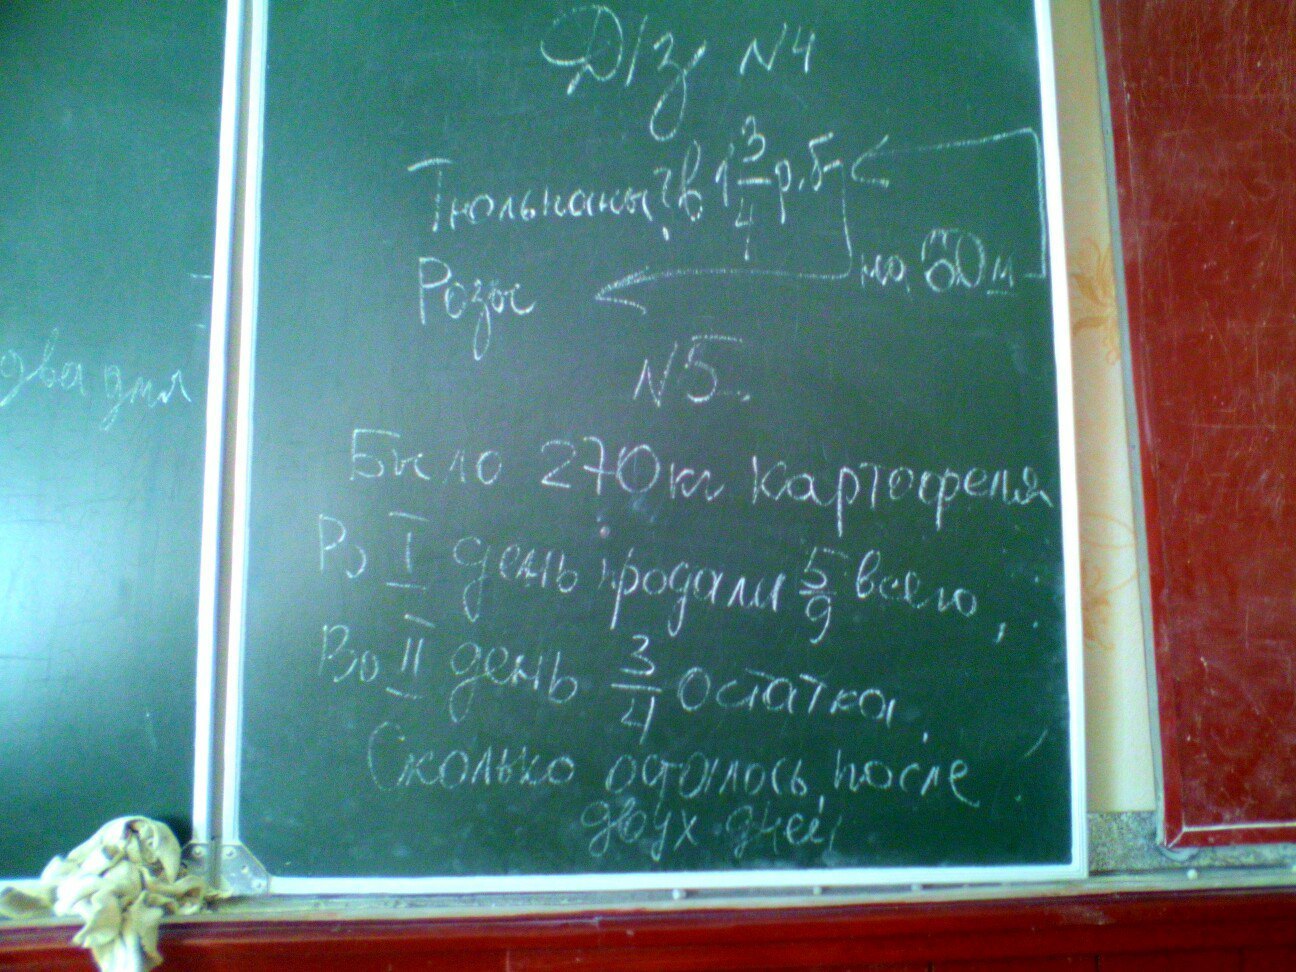 два дня
Д/з N4
Тюльпаны ? в 1 3/4 р. б
Розы
на 60 м
N5.
Было 270 кг картофеля
В I день продали 5/9 всего,
Во II день 3/4 остатка.
Сколько осталось после
двух дней